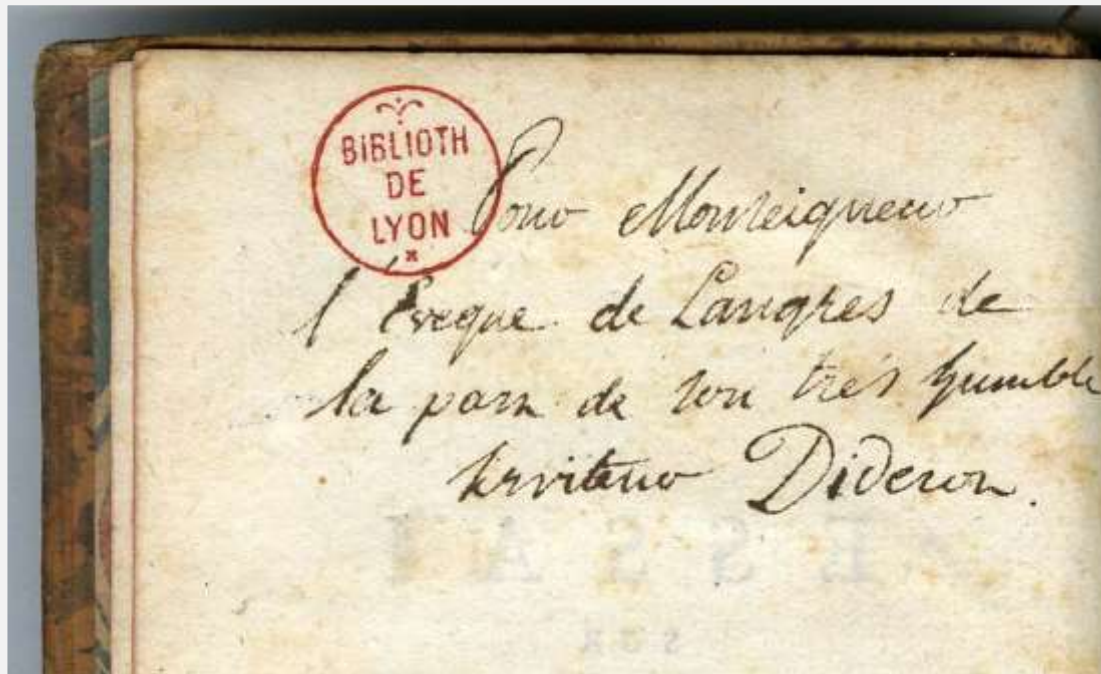 BIBLIOTH
DE
LYON
Pour Monseigneur
l'Eveque de Langres de
la part de son très humble
serviteur Diderot.
ESSAI
SUR